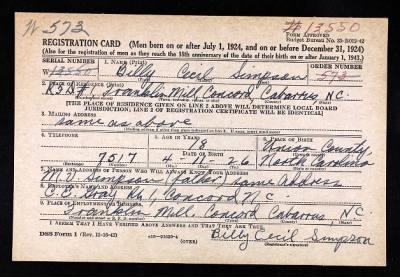 W 573
W 13550
FORM APPROVED
Budget Bureau No. 33-R012-42
REGISTRATION CARD (Men born on or after July 1, 1924, and on or before December 31, 1924)
(Also for the registration of men as they reach the 18th anniversary of the date of their birth on or after January 1, 1943.)
SERIAL NUMBER 1. NAME (Print) ORDER NUMBER
W 13550 Billy Cecil Simpson 573
(First) (Middle) (Last)
2. PLACE OF RESIDENCE (Print)
Franklin Mill Concord, Cabarrus, N.C.
[THE PLACE OF RESIDENCE GIVEN ON LINE 2 ABOVE WILL DETERMINE LOCAL BOARD
JURISDICTION; LINE 2 OF REGISTRATION CERTIFICATE WILL BE IDENTICAL]
3. MAILING ADDRESS
Same as above
4. TELEPHONE 5. AGE IN YEARS 6. PLACE OF BIRTH
18 Union County
7517 4 26 North Carolina
7. NAME AND ADDRESS OF PERSON WHO WILL ALWAYS KNOW YOUR ADDRESS
Simpson (Father) Same Address
8. EMPLOYER'S NAME AND ADDRESS
Concord N C
9. PLACE OF EMPLOYMENT OR BUSINESS
Franklin Mill. Concord Cabarrus, NC
I AFFIRM THAT I HAVE VERIFIED ABOVE ANSWERS AND THAT THEY ARE TRUE.
DSS Form 1 (OVER) Billy Cecil Simpson
(Registrant's signature)